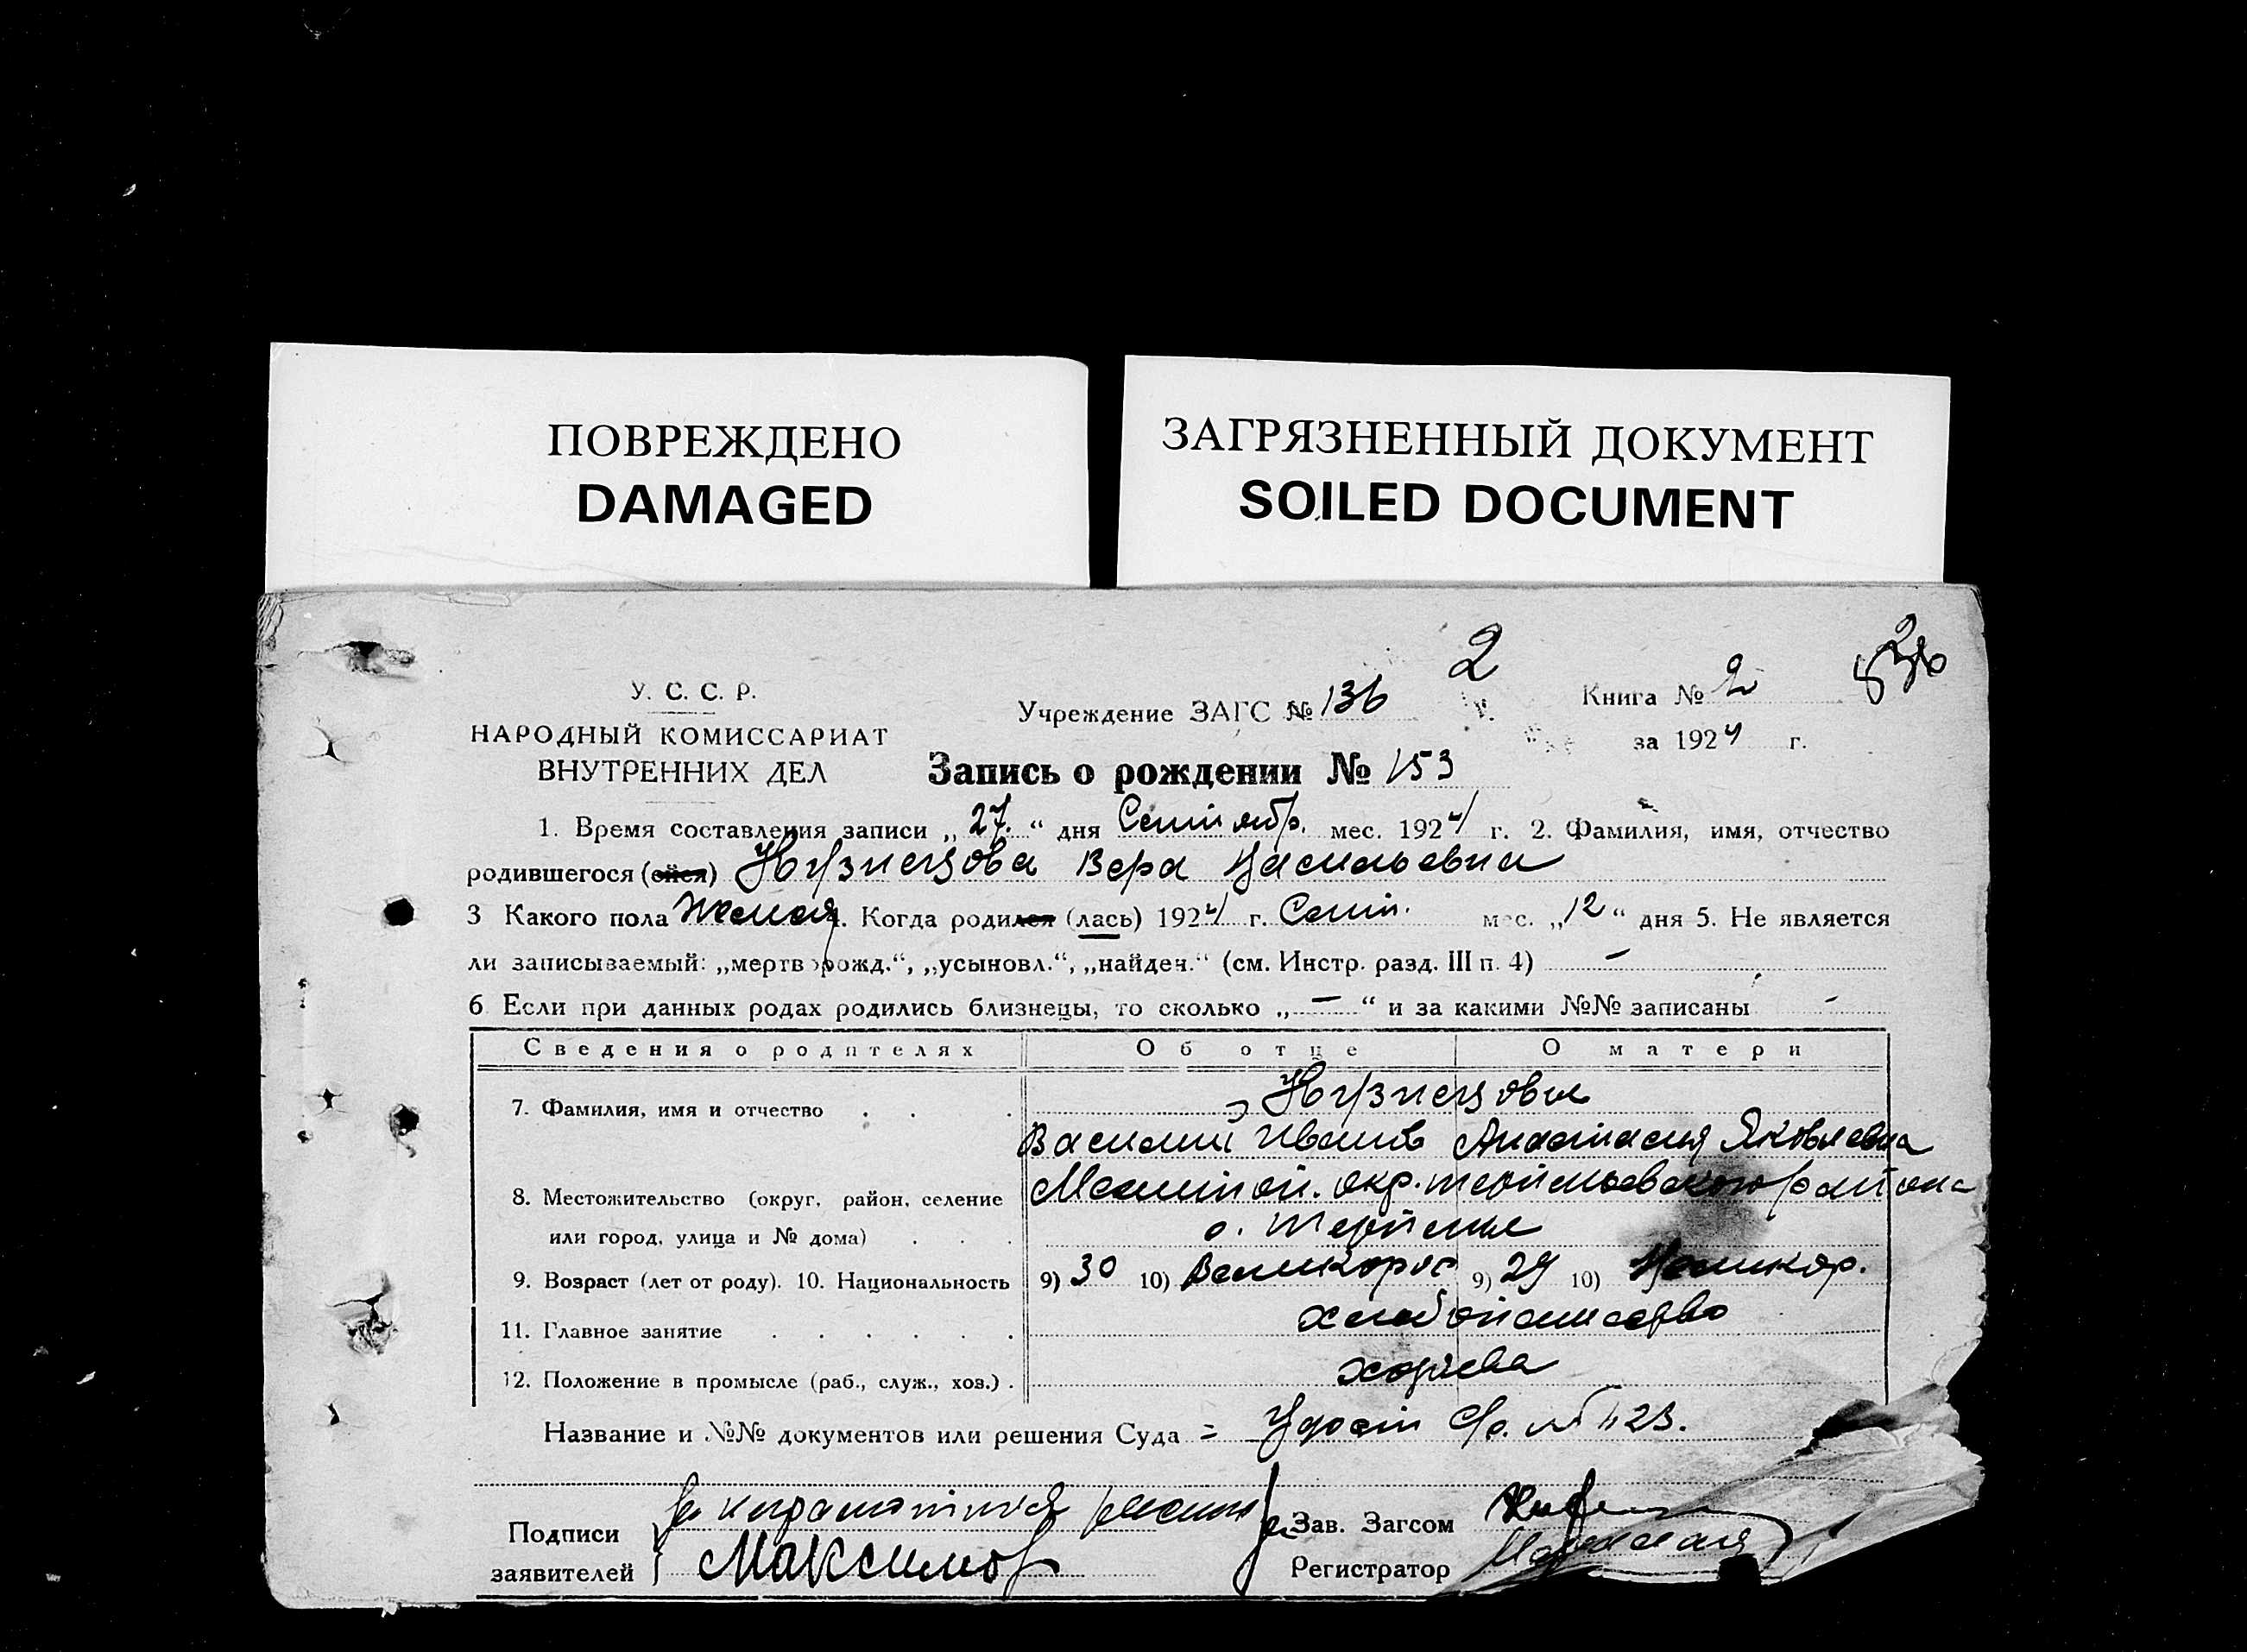 ПОВРЕЖДЕНО
DAMAGED
ЗАГРЯЗНЕННЫЙ ДОКУМЕНТ
SOILED DOCUMENT
2
У. С. С. Р.
НАРОДНЫЙ КОМИССАРИАТ
ВНУТРЕННИХ ДЕЛ
Учреждение ЗАГС № 136
Книга № 2
за 1924 г.
Запись о рождении № 153
1. Время составления записи „27.“ дня Сентябр. мес. 1924 г. 2. Фамилия, имя, отчество
родившегося (ейся) Кузнецова Вера Васильевна
3 Какого пола Женская 4. Когда родился (лась) 1924 г. Сент. мес. „12“ дня 5. Не является
ли записываемый: „мертворожд.“, „усыновл.“, „найден.“ (см. Инстр. разд. III п. 4) –
6 Если при данных родах родились близнецы, то сколько „–“ и за какими №№ записаны -
Сведения о родителях Об отце О матери
7. Фамилия, имя и отчество . . . Кузнецовы
Василий Иванов Анастасия Яковлевна
8. Местожительство (округ, район, селение Мелитоп. окр. Терпеньевского района
или город, улица и № дома) . . . с. Терпенье
9. Возраст (лет от роду). 10. Национальность 9) 30 10) Великорос 9) 29 10) Великор.
11. Главное занятие . . . . . . хлебопашество
12. Положение в промысле (раб., служ., хоз.) . хозяева
Название и №№ документов или решения Суда = Удост с/с. № 1123.
Подписи
заявителей
за неграмотного расписался
Максимов
Зав. Загсом
Регистратор